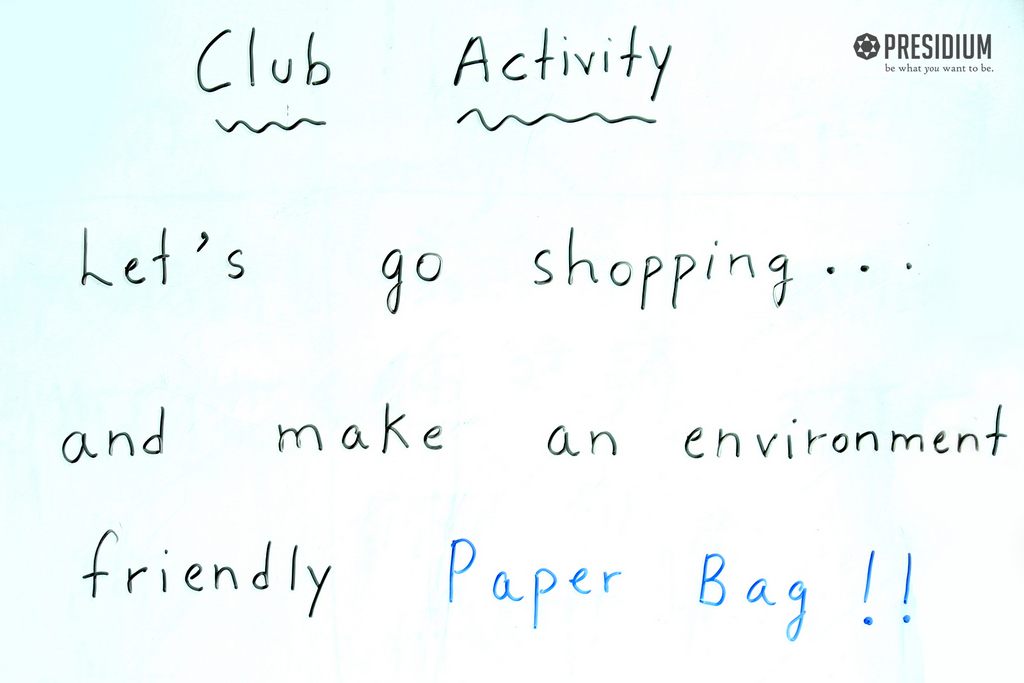 Club Activity
PRESIDIUM
be what you want to be.
Let's go shopping...
and make an environment
friendly Paper Bag !!